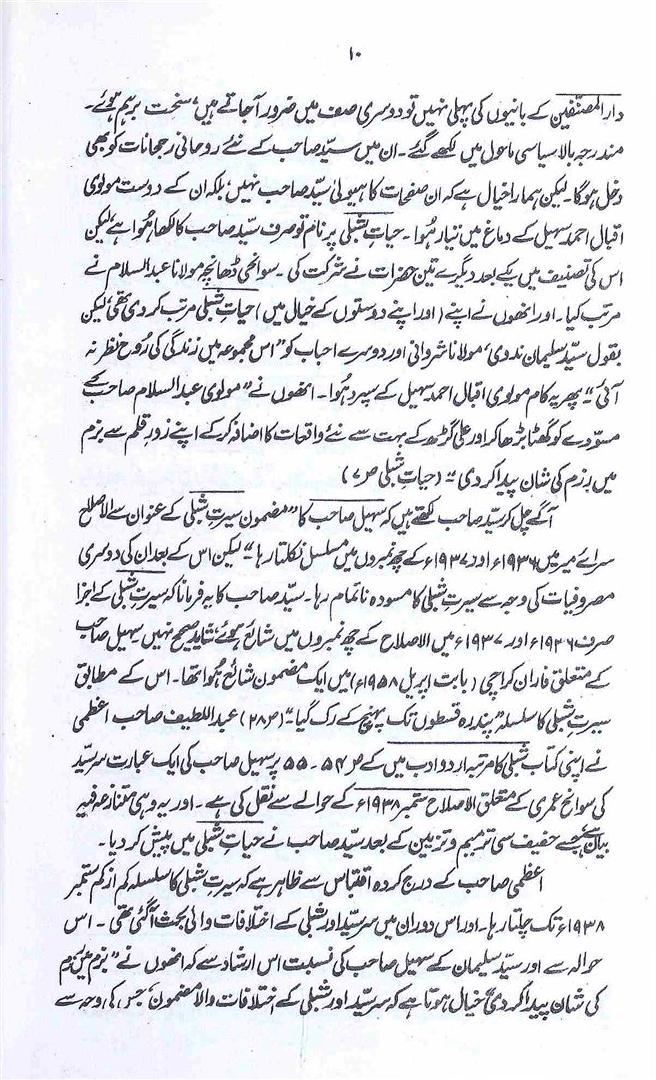 ۱۰
دارالمصنّفین کے بانیوں کی پہلی نہیں تو دوسری صف میں ضرور آجاتے ہیں‘ سخت برہم ہوئے۔
مندرجہ بالا سیاسی ماحول میں لکھے گئے۔ ان میں سیّد صاحب کے نئے روحانی رجحانات کو بھی
دخل ہوگا۔ لیکن ہمارا خیال ہے کہ ان صفحات کا ہیولیٰ سیّد صاحب نہیں‘ بلکہ ان کے دوست مولوی
اقبال احمد سہیل کے دماغ میں تیار ہُوا۔ حیاتِ شبلی پر نام تو صرف سیّد صاحب کا لکھا ہُوا ہے‘ لیکن
اس کی تصنیف میں یکے بعد دیگرے تین حضرات نے شرکت کی۔ سوانحی ڈھانچہ مولانا عبدالسلام نے
مرتب کیا۔ اور انھوں نے اپنے (اور اپنے دوستوں کے خیال میں) حیاتِ شبلی مرتب کر دی تھی‘ لیکن
بقول سیّد سلیمان ندوی‘ مولانا شروانی اور دوسرے احباب کو ”اس مجموعہ میں زندگی کی رُوح نظر نہ
آئی“۔ پھر یہ کام مولوی اقبال احمد سہیل کے سپرد ہُوا۔ انھوں نے ”مولوی عبدالسلام صاحب کے
مسوّدے کو گھٹا بڑھا کر اور علی گڑھ کے بہت سے نئے واقعات کا اضافہ کر کے اپنے زورِ قلم سے بزم
میں رزم کی شان پیدا کر دی“۔ (حیاتِ شبلی ص ۷)
آگے چل کر سیّد صاحب لکھتے ہیں کہ سہیل صاحب کا ”مضمون سیرتِ شبلی کے عنوان سے الاصلاح
سرائے میر میں ۱۹۳۶ء اور ۱۹۳۷ء کے چھ نمبروں میں مسلسل نکلتا رہا“۔ لیکن اس کے بعد ان کی دوسری
مصروفیات کی وجہ سے سیرتِ شبلی کا مسودہ ناتمام رہا۔ سیّد صاحب کا یہ فرمانا کہ سیرتِ شبلی کے اجزا
صرف ۱۹۳۶ء اور ۱۹۳۷ء میں الاصلاح کے چھ نمبروں میں شائع ہوئے‘ شاید صحیح نہیں۔ سہیل صاحب
کے متعلق فاران کراچی (بابت اپریل ۱۹۵۸ء) میں ایک مضمون شائع ہُوا تھا۔ اس کے مطابق
سیرتِ شبلی کا سلسلہ ”پندرہ قسطوں تک پہنچ کے رک گیا“۔ (ص ۲۸) عبداللطیف صاحب اعظمی
نے اپنی کتاب شبلی کا مرتبہ اردو ادب میں کے ص ۵۴۔۵۵ پر سہیل صاحب کی ایک عبارت سرسیّد
کی سوانح عمری کے متعلق الاصلاح ستمبر ۱۹۳۸ء کے حوالے سے نقل کی ہے۔ اور یہ وہی متنازعہ فیہ
بیان ہے‘ جسے خفیف سی ترمیم و تزیین کے بعد سیّد صاحب نے حیاتِ شبلی میں پیش کر دیا۔
اعظمی صاحب کے درج کردہ اقتباس سے ظاہر ہے کہ سیرتِ شبلی کا سلسلہ کم از کم ستمبر
۱۹۳۸ء تک چلتا رہا۔ اور اس دوران میں سرسیّد اور شبلی کے اختلافات والی بحث آگئی تھی۔ اس
حوالہ سے اور سیّد سلیمان کے سہیل صاحب کی نسبت اس ارشاد سے کہ انھوں نے ”بزم میں رزم
کی شان پیدا کر دی“ خیال ہوتا ہے کہ سرسیّد اور شبلی کے اختلافات والا مضمون‘ جس کی وجہ سے